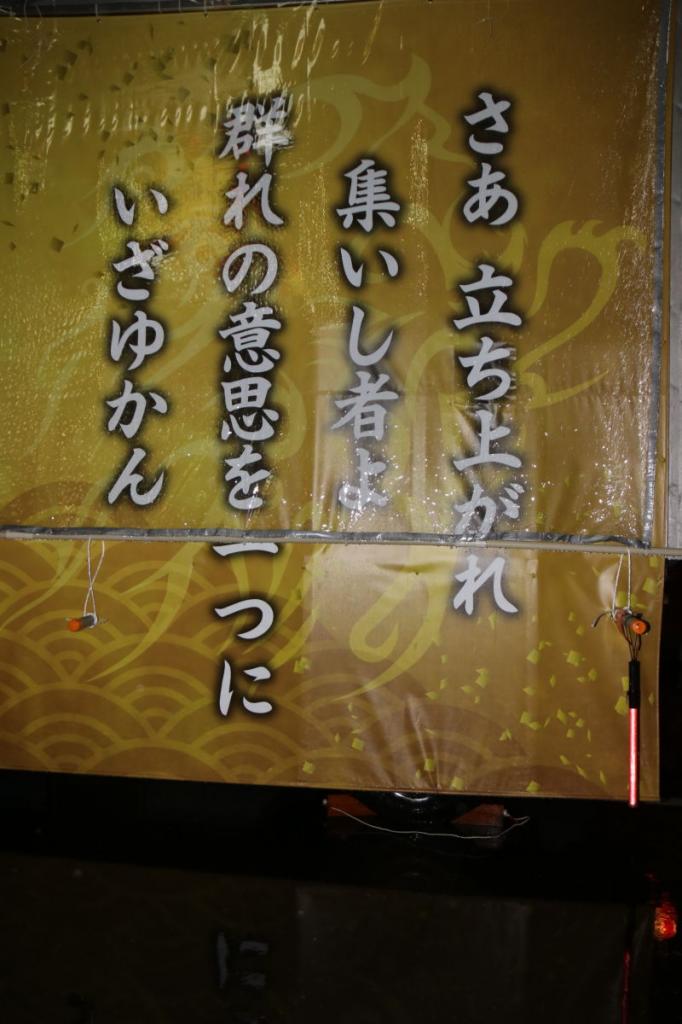 さあ 立ち上がれ
集いし者よ
群れの意思を一つに
いざゆかん